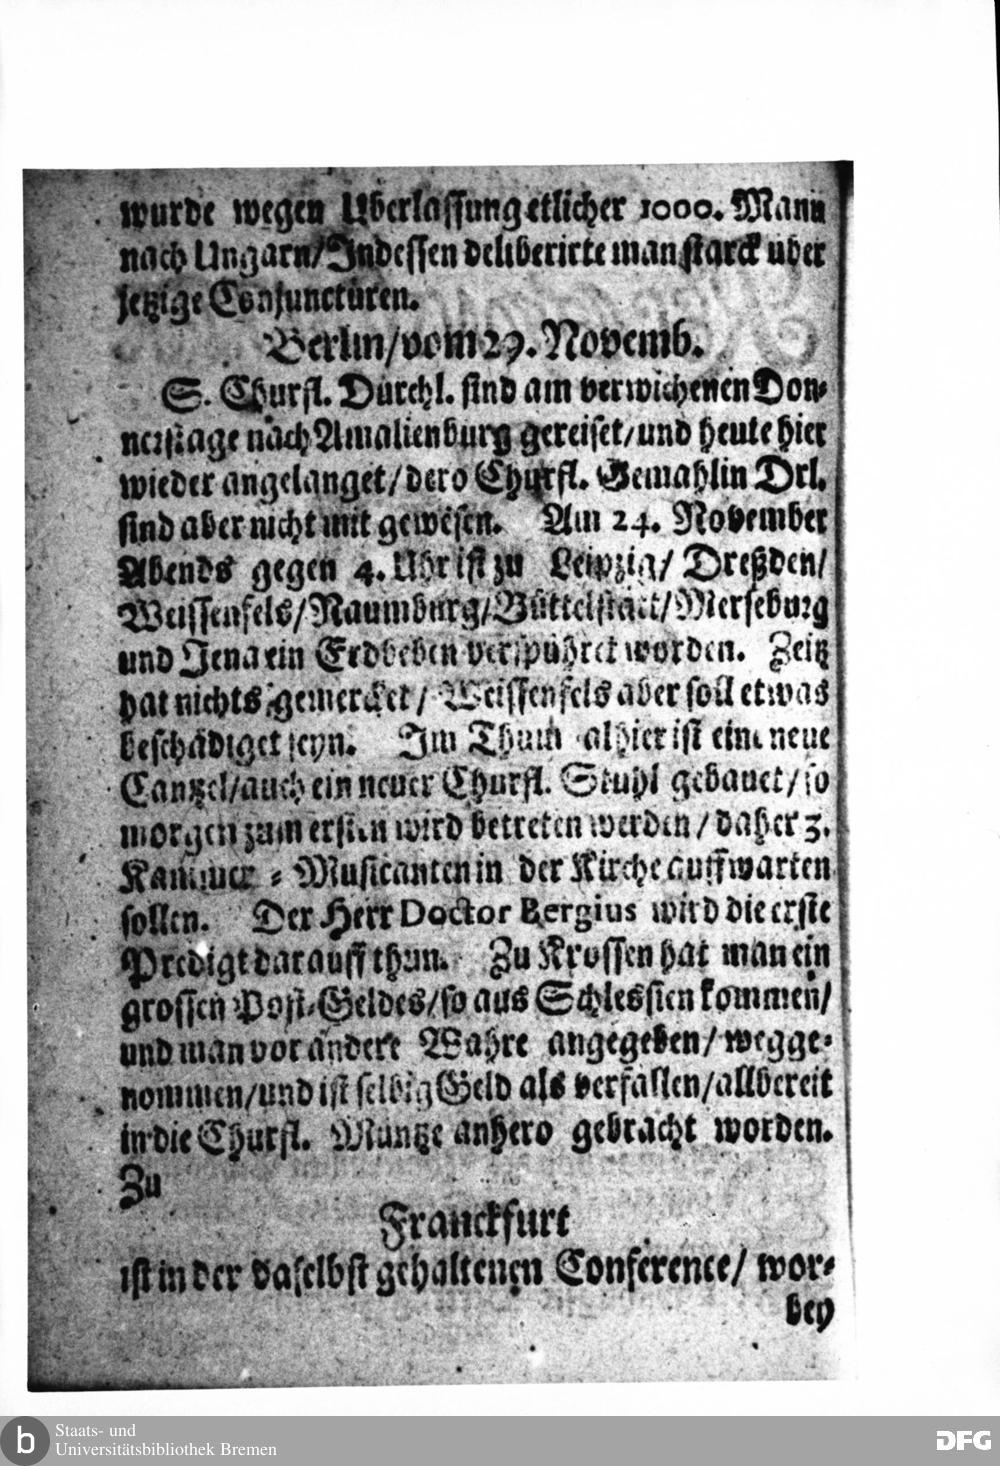 wurde wegen Uberlassung etlicher 1000. Mann
nach Ungarn/ Indessen deliberirte man starck über
jetzige Conjuncturen.
Berlin/ vom 29. Novemb.
S. Churfl. Durchl. sind am verwichenen Don-
nerstage nach Amalienburg gereiset/ und heute hier
wieder angelanget/ dero Churfl. Gemahlin Drl.
sind aber nicht mit gewesen. Am 24. November
Abends gegen 4. Uhr ist zu Leipzig/ Dreßden/
Weissenfels/ Naumburg/ Büttelstätt/ Merseburg
und Jena ein Erdbeben verspühret worden. Zeitz
hat nichts gemercket/ Weissenfels aber soll etwas
beschädiget seyn. Im Thum alhier ist eine neue
Cantzel/ auch ein neuer Churfl. Stuhl gebauet/ so
morgen zum ersten wird betreten werden/ daher 3.
Kammer-Musicanten in der Kirche auffwarten
sollen. Der Herr Doctor Bergius wird die erste
Predigt darauff thun. Zu Krossen hat man ein
grossen Post-Geldes/ so aus Schlessien kommen/
und man vor andere Wahre angegeben/ wegge-
nommen/ und ist selbig Geld als verfallen/ allbereit
in die Churfl. Müntze anhero gebracht worden.
Zu
Franckfurt
ist in der daselbst gehaltenen Conference/ wor-
bey
b Staats- und
Universitätsbibliothek Bremen
DFG